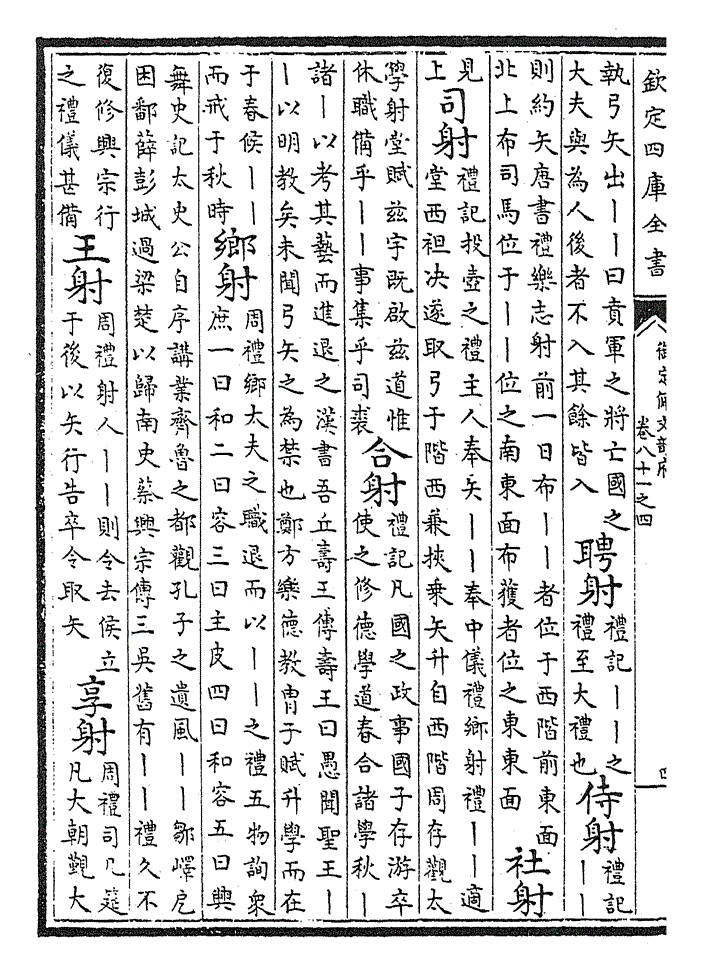 欽定四庫全書
御定佩文韻府
卷八十一之四
四
執弓矢出丨丨曰賁軍之將亡國之
大夫與為人後者不入其餘皆入
聘射
禮記丨丨之
禮至大禮也
侍射
禮記
丨丨
則約矢唐書禮樂志射前一日布丨丨者位于西階前東面
北上布司馬位于丨丨位之南東面布獲者位之東東面
社射
見
上
司射
禮記投壺之禮主人奉矢丨丨奉中儀禮鄉射禮丨丨適
堂西袒决遂取弓于階西兼挾乗矢升自西階周存觀太
學射堂賦兹宇既啟兹道惟
休職備乎丨丨事集乎司裘
合射
禮記凡國之政事國子存游卒
使之修德學道春合諸學秋丨
諸丨以考其藝而進退之漢書吾丘壽王傳壽王曰愚聞聖王丨
丨以明教矣未聞弓矢之為禁也鄭方樂德教胄子賦升學而在
于春候丨丨
而戒于秋時
鄉射
周禮鄉大夫之職退而以丨丨之禮五物詢衆
庶一曰和二曰容三曰主皮四曰和容五曰興
舞史記太史公自序講業齊魯之都觀孔子之遺風丨丨鄒嶧戹
困鄱薛彭城過梁楚以歸南史蔡興宗傳三吳舊有丨丨禮久不
復修興宗行
之禮儀甚備
王射
周禮射人丨丨則令去侯立
于後以矢行告卒令取矢
享射
周禮司几筵
凡大朝覲大